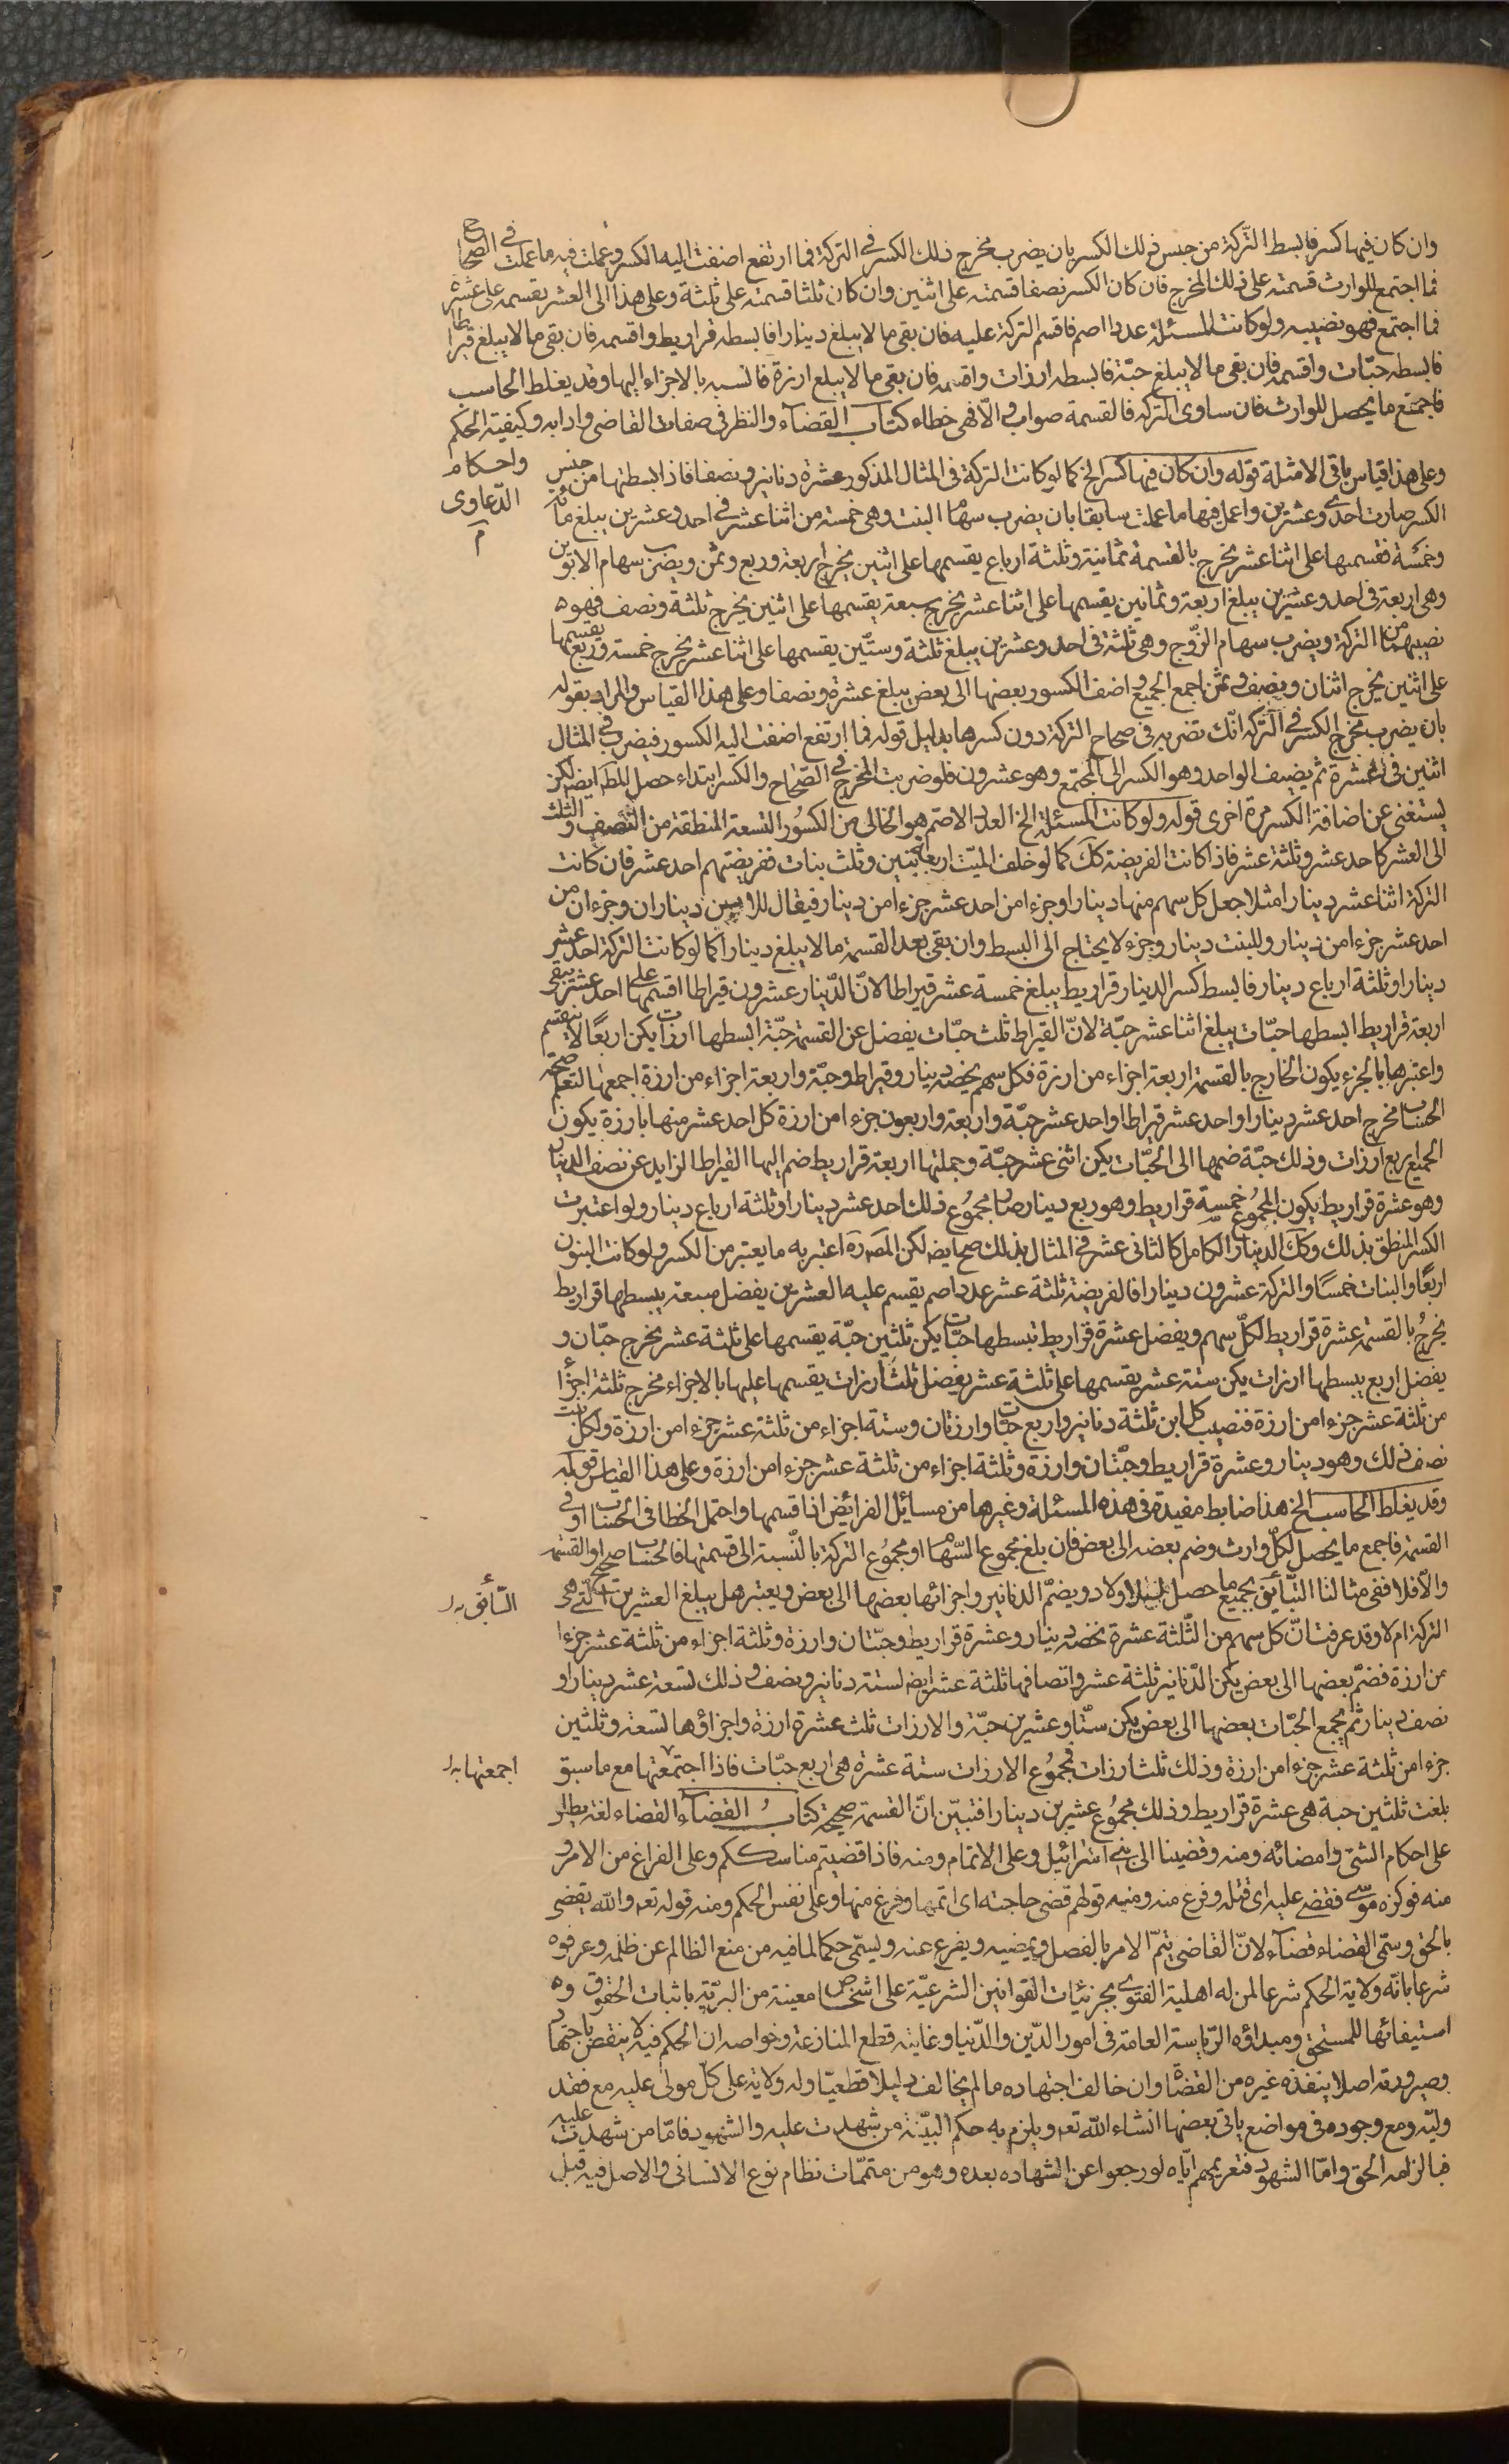 وان كان فيها كسر فابسط التركة من جنس ذلك الكسر بان يضرب مخرج ذلك الكسر في التركة فما ارتفع اضفت اليه الكسر وعملت فيه ما عملت في الصحاح
فما اجتمع للوارث قسمته على ذلك المخرج فان كان الكسر نصفا قسمته على اثنين وان كان ثلثا قسمته على ثلثة وعلى هذا الى العشر يقسمه على عشرة
فما اجتمع فهو نصيبه ولو كانت المسئلة عددا اصم فاقسم التركة عليه فان بقى ما لا يبلغ دينارا فابسطه قراريط واقسمه فان بقى ما لا يبلغ قيراطا
فابسطه حبّات واقسمه فان بقى ما لا يبلغ حبّة فابسطه ارزات واقسمه فان بقى ما لا يبلغ ارزة فانسبه بالاجزاء اليها وقد يغلط الحاسب
فاجمع ما يحصل للوارث فان ساوى التركه فالقسمة صواب والّا فهى خطاء كتاب القضاء والنظر فى صفات القاضى وادابه وكيفية الحكم
واحكام
الدّعاوى
م
وعلى هذا قياس باقى الامثلة قوله وان كان فيها كسر الخ كما لو كانت التركة فى المثال المذكور عشرة دنانير ونصفا فاذا بسطتها من جنس
الكسر صارت احدى وعشرين واعمل فيها ما عملت سابقا بان يضرب سهام البنت وهى خمسة من اثنا عشر فى احد وعشرين يبلغ مائة
وخمسة نقسمها على اثنا عشر يخرج بالقسمة ثمانية وثلثة ارباع يقسمها على اثنين يخرج اربعة وربع وثمن ويضرب سهام الابوين
وهى اربعة فى احد وعشرين يبلغ اربعة وثمانين يقسمها على اثنا عشر يخرج سبعة يقسمها على اثنين يخرج ثلثة ونصف فهو
نصيبهما من التركة ويضرب سهام الزّوج وهى ثلثة فى احد وعشرين يبلغ ثلثة وستّين يقسمها على اثنا عشر يخرج خمسة وربع يقسمها
على اثنين يخرج اثنان ونصف وثمن اجمع الجميع واضف الكسور بعضها الى بعض يبلغ عشرة ونصفا وعلى هذا القياس والمراد بقوله
بان يضرب مخرج الكسر فى التركة انّك تضربه فى صحاح التركة دون كسرها بدليل قوله فما ارتفع اضفت اليه الكسور فيضرب فى المثال
اثنين فى عشرة ثم يضيف الواحد وهو الكسر الى المجتمع وهو عشرون فلو ضربت المخرج فى الصّحاح والكسر ابتداء حصل المط ايضا لكن
يستغنى عن اضافة الكسر مرة اخرى قوله ولو كانت المسئلة الخ العدد الاصم هو الخالى من الكسُور التسعة المنطقة من النّصف والثلث
الى العشر كاحد عشر وثلثة عشر فاذا كانت الفريضة كك كما لو خلف الميّت اربعة بنين وثلث بنات ففريضتهم احد عشر فان كانت
التركة اثنا عشر دينارا مثلا جعل كل سهم منها دينارا وجزءا من احد عشر جزءا من دينار فيقال للابن ديناران وجزءان من
احد عشر جزءا من دينار وللبنت دينار وجزء لا يحتاج الى البسط وان بقى بعد القسمة ما لا يبلغ دينارا كما لو كانت التركة احد عشر
دينارا وثلثة ارباع دينار فابسط كسر الدينار قراريط يبلغ خمسة عشر قيراطا لانّ الدّينار عشرون قيراطا اقسمها على احد عشر يبقى
اربعة قراريط ابسطها حبّات يبلغ اثنا عشر حبّة لانّ القيراط ثلث حبّات يفضل عن القسمة حبّة ابسطها ارزات يكن اربعًا لا ينقسم
واعتبرها بالجزء يكون الخارج بالقسمة اربعة اجزاء من ارزة فكل سهم يخصه دينار وقيراط وحبّة واربعة اجزاء من ارزة اجمعها لتعلم صحّة
الحساب مخرج احد عشر دينارا واحد عشر قيراطا واحد عشر حبّة واربعة واربعون جزءا من ارزة كل احد عشر منها بارزة يكون
الجميع اربع ارزات وذلك حبّة ضمها الى الحبّات يكن اثنى عشر حبّة وجملتها اربعة قراريط ضم اليها القيراط الزايد عن نصف الدينار
وهو عشرة قراريط يكون المجموع خمسة قراريط وهو ربع دينار صار مجموُع ذلك احد عشر دينارا وثلثة ارباع دينار ولو اعتبرت
الكسر المنطق بذلك وكك الدينار الكامل كالثانى عشر فى المثال بذلك صح ايضا لكن المصره اعتبر به ما يعتبر من الكسر ولو كانت البنون
اربعًا والبنات خمسًا والتركة عشرون دينارا فالفريضة ثلثة عشر عدد اصم يقسم عليه العشرين يفضل سبعة يبسطها قراريط
يخرجُ بالقسمة عشرة قراريط لكلّ سهم ويفضل عشرة قراريط تبسطها حبّات يكن ثلثين حبّة يقسمها على ثلثة عشر يخرج حبّتان و
يفضل اربع يبسطها ارزات يكن ستة عشر يقسمها على ثلثة عشر يفضل ثلث ارزات يقسمها عليها بالاجزاء مخرج ثلثة اجزاء
من ثلثة عشر جزءا من ارزة فنصيب كل ابن ثلثة دنانير واربع حبّات وارزتان وستة اجزاء من ثلثة عشر جزءا من ارزة ولكل بنت
نصف ذلك وهو دينار وعشرة قراريط وحبّتان وارزة وثلثة اجزاء من ثلثة عشر جزءا من ارزة وعلى هذا القياس قوله
وقد يغلط الحاسب الخ هذا ضابط مفيد فى هذه المسئلة وغيرها من مسائل الفرائض اذا قسمها واحتمل الخطا فى الحساب او فى
القسمة فاجمع ما يحصل لكلّ وارث وضم بعضه الى بعض فان بلغ مجموع السّهام او مجموُع التركة بالنّسبة الى قسمتها فالحساب صحيح او القسمة
والّا فلا ففى مثالنا السّابق بجميع ما حصل للاولاد ويضمّ الدنانير واجزائها بعضها الى بعض ويعتبر هل يبلغ العشرين الّتى هى
السّابق بدل
التركة ام لا وقد عرفت انّ كل سهم من الثّلثة عشرة يخصه دينار وعشرة قراريط وحبّتان وارزة وثلثة اجزاء من ثلثة عشر جزءا
من ارزة فضمّ بعضها الى بعض يكن الدّنانير ثلثة عشر وانصافها ثلثة عشر ايضا لستة دنانير ونصف وذلك تسعة عشر دينارا و
نصف دينار ثم يجمع الحبّات بعضها الى بعض يكن ستّا وعشرين حبّة والارزات ثلث عشرة ارزة واجزاؤها تسعة وثلثين
جزءا من ثلثة عشر جزءا من ارزة وذلك ثلث ارزات فمجموُع الارزات ستة عشرة هى اربع حبّات فاذا اجتمعتها مع ما سبق
اجمعتها بدل
بلغت ثلثين حبة هى عشرة قراريط وذلك مجموُع عشرين دينارا فتبيّن انّ القسمة صحيحة كتابُ القضاء القضاء لغة يطلق
على احكام الشئ وامضائه ومنه وقضينا الى بنى اسرائيل وعلى الاتمام ومنه فاذا قضيتم مناسككم وعلى الفراغ من الامر و
منه فوكزه موسى فقضى عليه اى قتله وفرغ منه ومنه قولهم قضى حاجته اى اتمها وفرغ منها وعلى نفس الحكم ومنه قوله تعه والله يقضى
بالحق وسمّى القضاء قضآء لانّ القاضى يتمّ الامر بالفصل ويمضيه ويفرغ عنه ويسمّى حكما لما فيه من منع الظالم عن ظلمه وعرفوه
شرعا بانّه ولاية الحكم شرعا لمن له اهلية الفتوى بجزئيات القوانين الشرعيّة على اشخاص معينة من البريّة باثبات الحقوق و
استيفائها للمستحق ومبداؤه الرّياسة العامة فى امور الدّين والدّنيا وغايته قطع المنازعة وخواصه ان الحكم فيه لا ينتقض باجتهاد
وصيرورته اصلا ينفذه غيره من القضاة وان خالف اجتهاده ما لم يخالف دليلا قطعيّا وله ولاية على كلّ مولى عليه مع فقد
وليّه ومع وجوده فى مواضع ياتى بعضها انشاء الله تعه ويلزم به حكم البيّنة من شهدت عليه والشهود فامّا من شهدت عليه
فبالزامه الحق وامّا الشهود فتغريمهم ايّاه لو رجعوا عن الشهاده بعده وهو من متممّات نظام نوع الانسانى والاصل فيه قبل